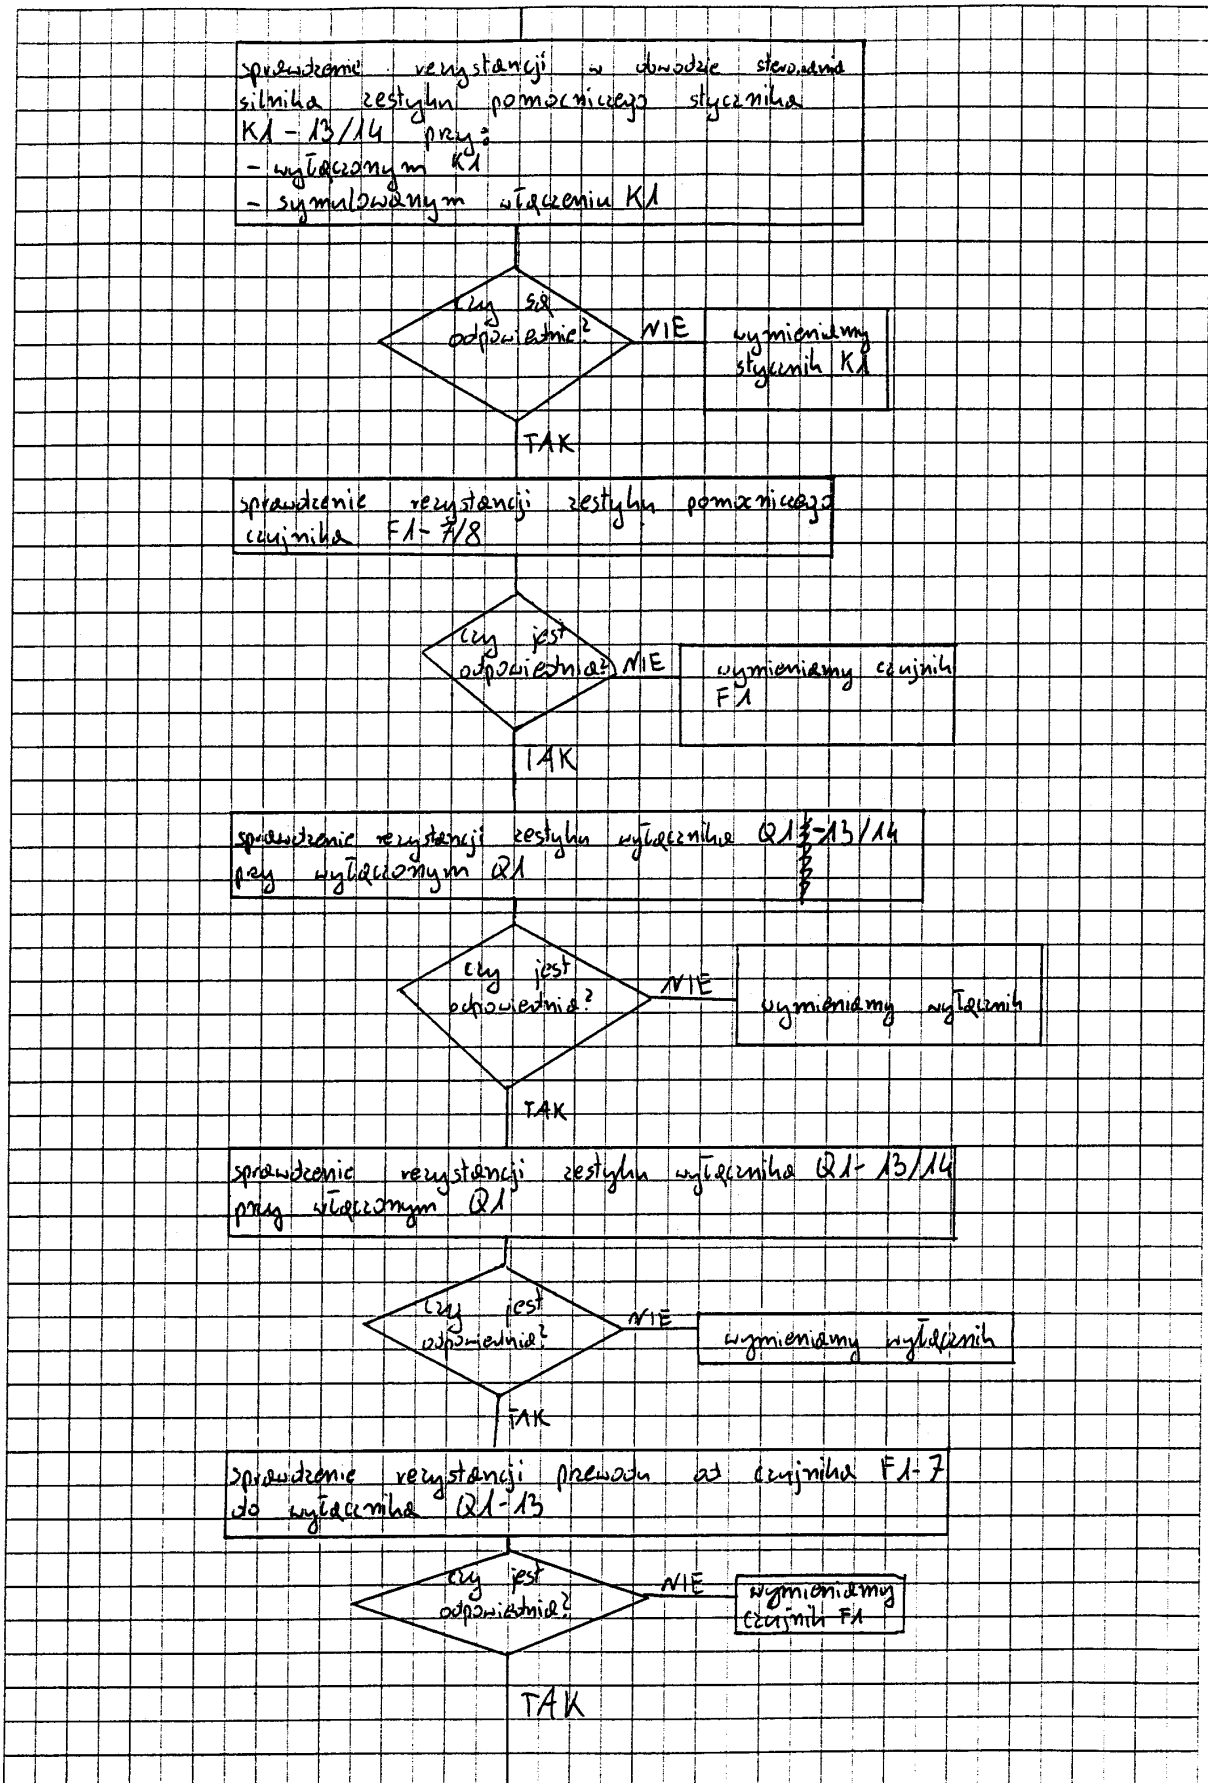 sprawdzenie rezystancji w obwodzie sterowania
silnika zestyku pomocniczego stycznika
K1 - 13/14 przy:
- wyłączonym K1
- symulowanym włączeniu K1
czy są
odpowiednie?
NIE
wymieniamy
stycznik K1
TAK
sprawdzenie rezystancji zestyku pomocniczego
czujnika F1- 7/8
czy jest
odpowiednia?
NIE
wymieniamy czujnik
F1
TAK
sprawdzenie rezystancji zestyku wyłącznika Q1 -13/14
przy wyłączonym Q1
czy jest
odpowiednia?
NIE
wymieniamy wyłącznik
TAK
sprawdzenie rezystancji zestyku wyłącznika Q1- 13/14
przy włączonym Q1
czy jest
odpowiednia?
NIE
wymieniamy wyłącznik
TAK
sprawdzenie rezystancji przewodu od czujnika F1-7
do wyłącznika Q1-13
czy jest
odpowiednia?
NIE
wymieniamy
czujnik F1
TAK